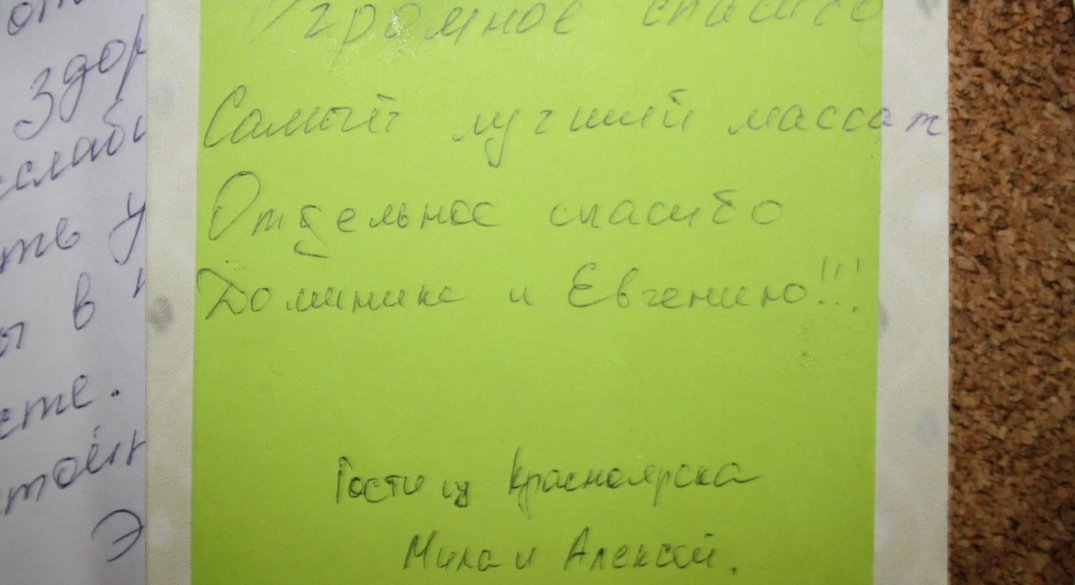 Огромное спасибо
Самый лучший массаж
Отдельное спасибо
Доминике и Евгению!!!
Гости из Красноярска
Мила и Алексей.